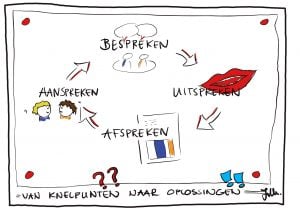 BESPREKEN
AANSPREKEN
UITSPREKEN
AFSPREKEN
??
!!
-VAN KNELPUNTEN NAAR OPLOSSINGEN-